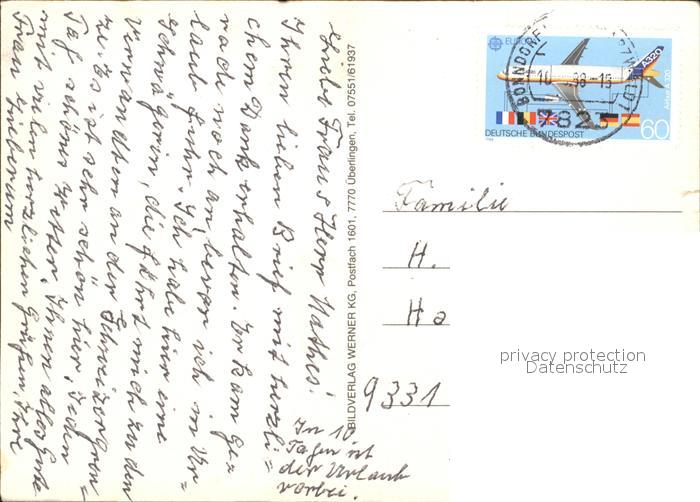 Liebe Frau u Herr Mathes!
Ihren lieben Brief mit herzli=
chem Dank erhalten. Er kam ge=
rade noch an, bevor ich in Ur=
laub fuhr. Ich habe hier eine
Schwägerin, die fährt mich zu den
Verwandten an der Schweizer Gren=
ze. Es ist sehr schön hier, jeden
Tag schönes Wetter. Ihnen alles Gute
mit vielen herzlichen Grüßen, Ihre
Frau
In 10
Tagen ist
der Urlaub
vorbei.
BILDVERLAG WERNER KG, Postfach 1601, 7770 Überlingen, Tel. 07551/61937
EUROPA
A320
Airbus A 320
DEUTSCHE BUNDESPOST
60
BONNDORF
88-15
7823
Familie
H.
Ha
9331
privacy protection
Datenschutz